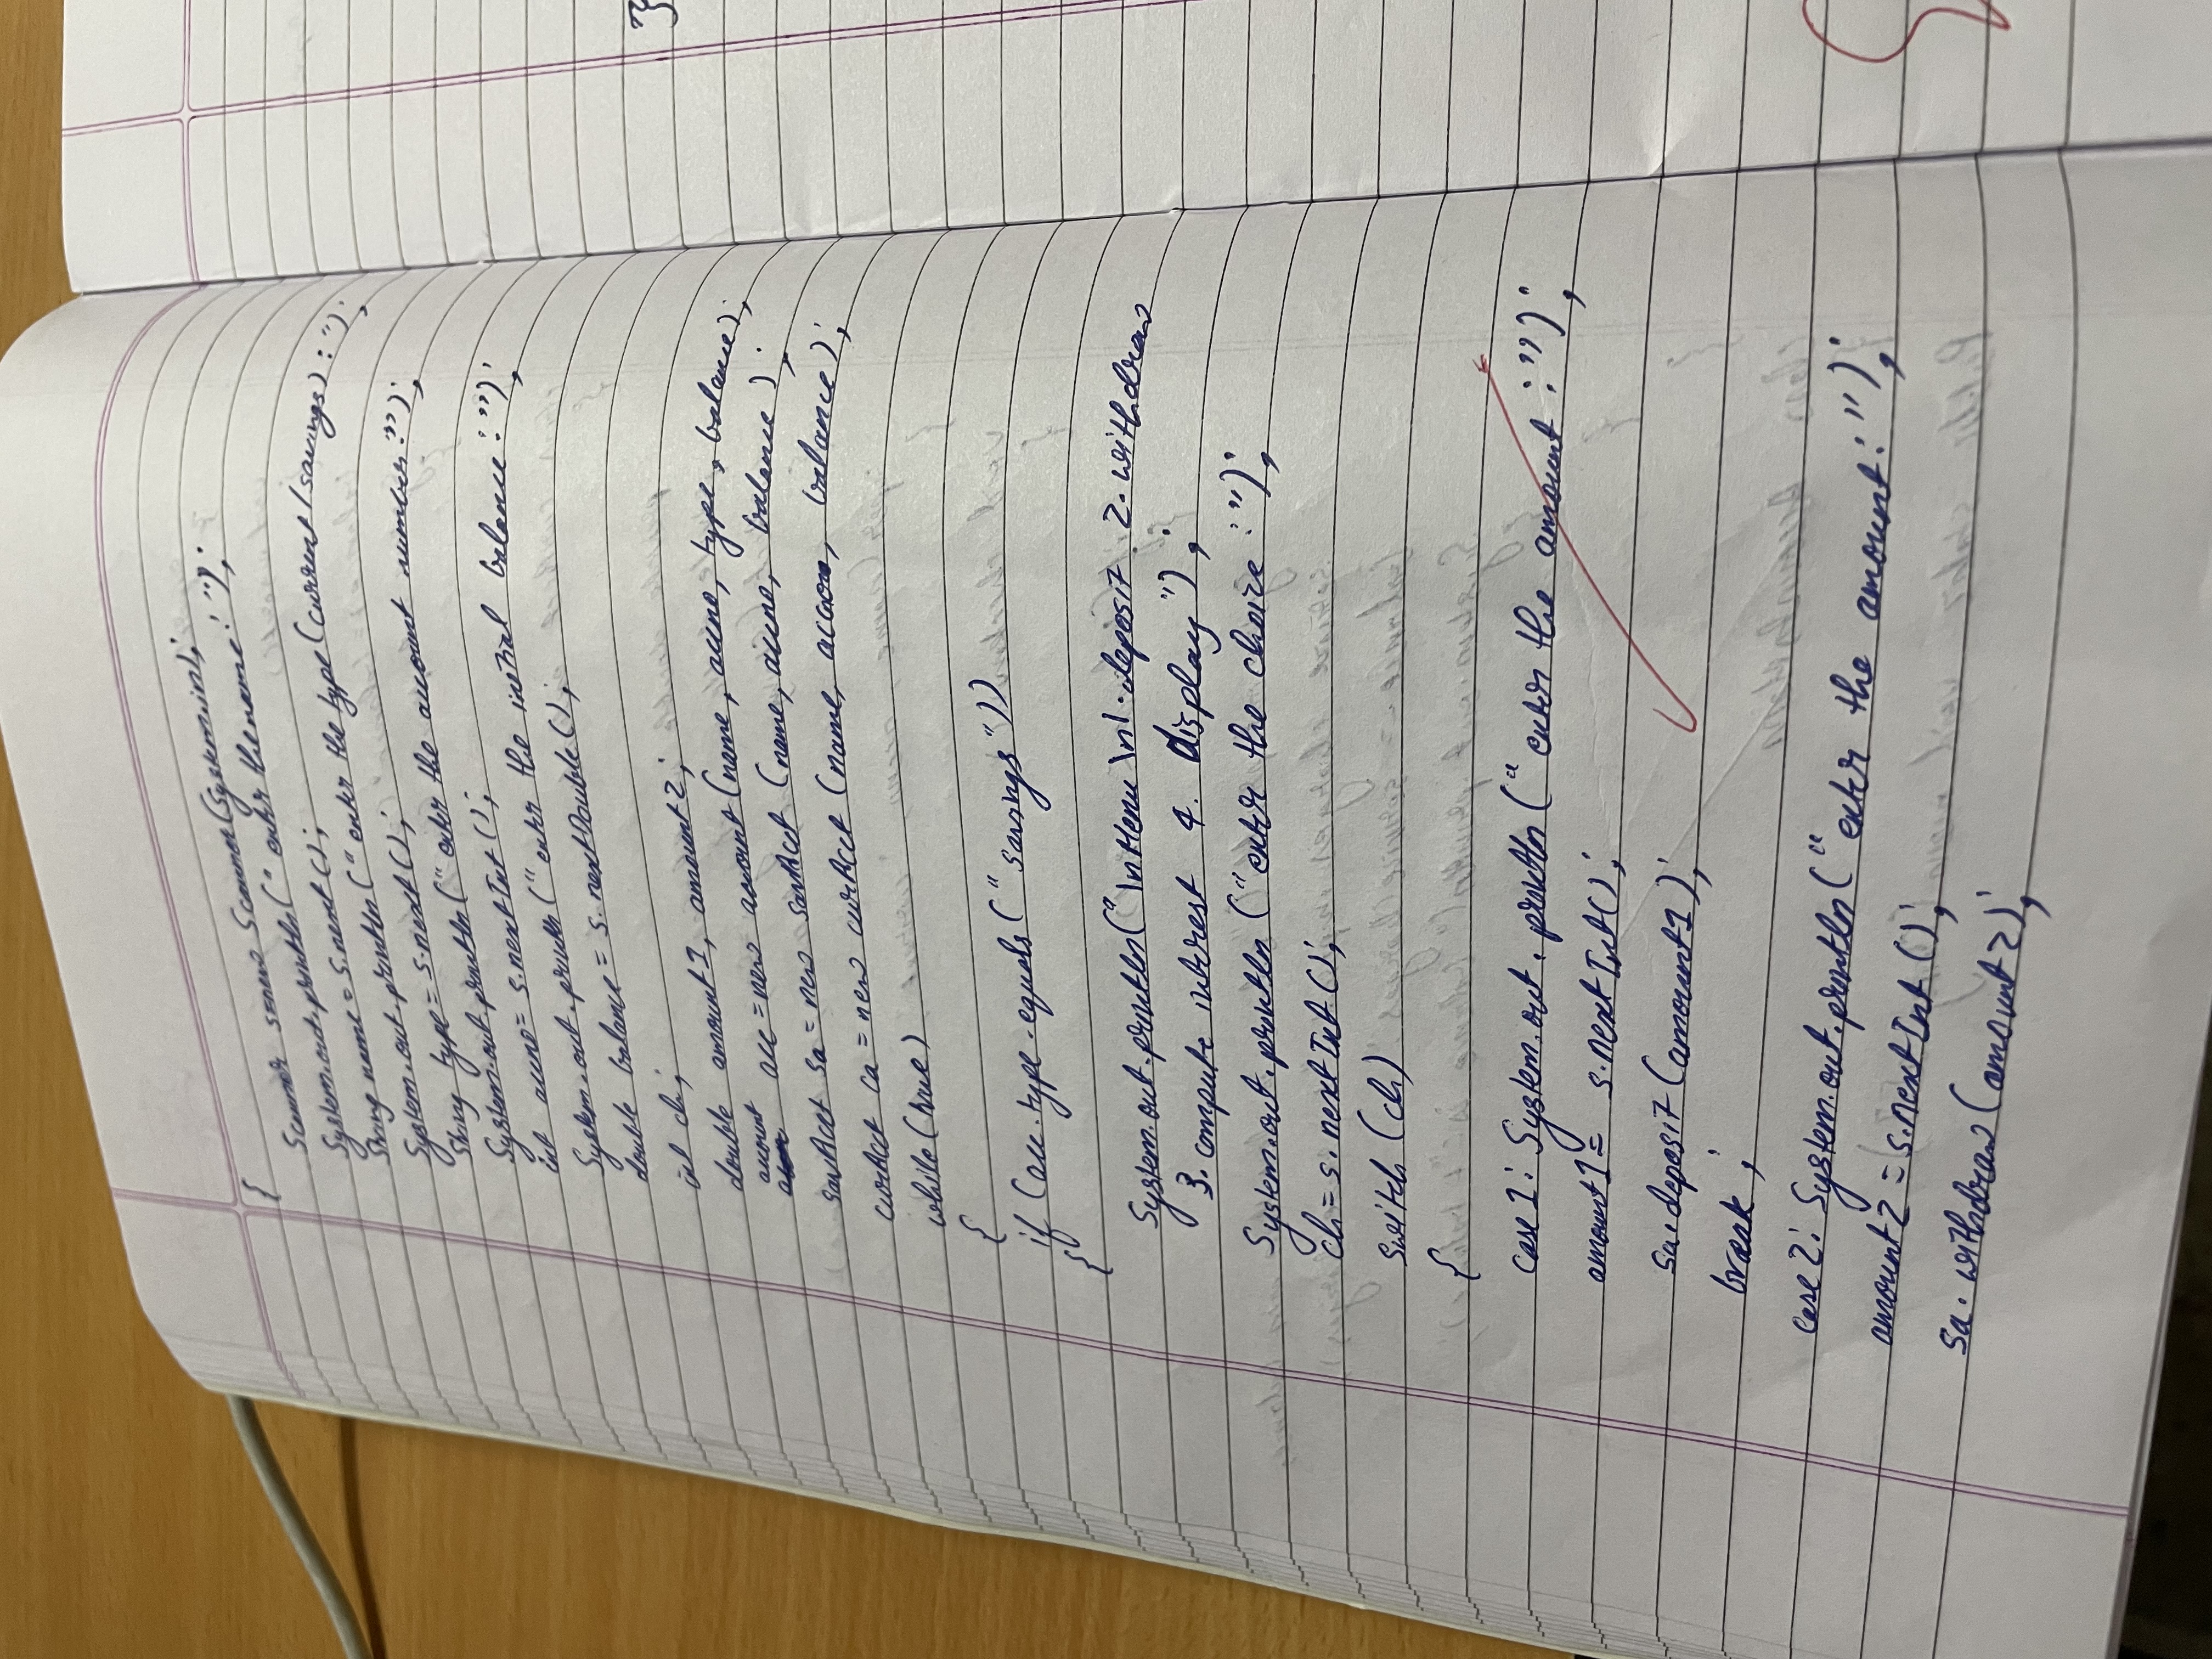 {
Scanner s=new Scanner(System.in);
System.out.println("enter the name:");
String name = s.next();
System.out.println("enter the type(current/savings):");
String type = s.next();
System.out.println("enter the account number:");
int accno= s.nextInt();
System.out.println("enter the initial balance:");
double balance = s.nextDouble();
int ch;
double amount1, amount2;
account acc = new account(name, accno, type, balance);
savAcct sa = new savAcct (name, accno, balance);
curAcct ca = new curAcct (name, accno, balance);
while(true)
{
if (acc.type.equals("savings"))
{
System.out.println("\nMenu\n1.deposit 2.withdraw
3.compute interest 4. display");
System.out.println ("enter the choice:");
ch=s.nextInt();
switch (ch)
{
case 1: System.out.println("enter the amount:");
amount1= s.nextInt();
sa.deposit(amount1);
break;
case 2: System.out.println("enter the amount:");
amount2 = s.nextInt();
sa.withdraw(amount2);
}